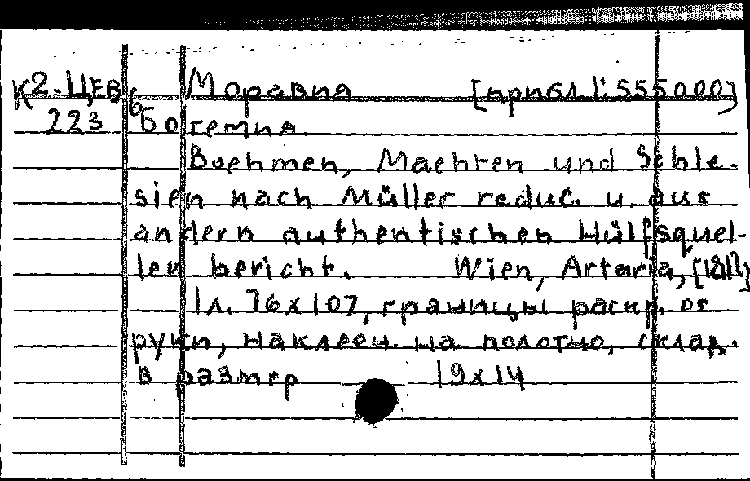 К2-ЦЕВ, Моравия [прибл 1:555000]
223 Богемия
Boehmen, Maehren und Schle-
sien nach Müller reduc. u. aus
andern authentischen Hülfsquel-
len bericht. Wien, Artaria,
1 л. 76x107, границы раскр. от
руки, наклеен. на полотно, склад.
в размер 19x14